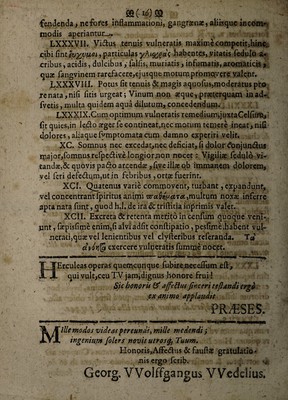 ( 16 )
fendenda, ne fores inflammationi, gangrænæ, aliisque incom-
modis aperiantur.
LXXXVII. Victus tenuis vulneratis maximè competit, hinc
cibi sint particulas habentes, vitatis sedulò a-
cribus, acidis, dulcibus, salsis, muriatis, infumatis, aromaticis,
quæ sangvinem rarefacere, ejusque motum promovere valent.
LXXXVIII. Potus sit tenuis & magis aquosus, moderatus pro
renata, nisi sitis urgeat; Vinum non æque, præterquam in ad-
svetis, multa quidem aquâ dilutum, concedendum.
LXXXIX. Cum optimum vulneratis remedium, juxta Celsum,
sit quies, in lecto æger se contineat, nec motum temerè ineat, nisi
dolores, aliaque symptomata eum damno experiri velit.
XC. Somnus nec excedat, nec deficiat, si dolor conjunctus
major, somnus respectivè longior non nocet: Vigiliæ sedulò vi-
tandæ, & quovis pacto arcendæ, sive illæ ob immanem dolorem,
vel seri defectum, ut in febribus, ortæ fuerint.
XCI. Quatenus variè commovent, turbant, expandunt,
vel concentrant spiritus animi multum noxæ inferre
apta nata sunt, quod h.l. de ira & tristitia inprimis valet.
XCII. Excreta & retenta meritò in censum quoque veni-
unt, sæpissimè enim, si alvi addit constipatio, pessimè habent vul-
nerati, quæ vel lenientibus vel clysteribus reseranda. Τὰ
exercere vulneratis summè nocet.
Herculeas operas quemcunque subire necessum est,
qui vult, ceu TV jam, dignus honore frui!
Sic honoris & affectus sinceri testandi ergo
ex animo applaudit
PRÆSES.
Mille modos videas pereundi, mille medendi;
ingenium solers novit utrosq; Tuum.
Honoris, Affectus & faustæ gratulatio-
nis ergo scrib.
Georg. VVolffgangus VVedelius.